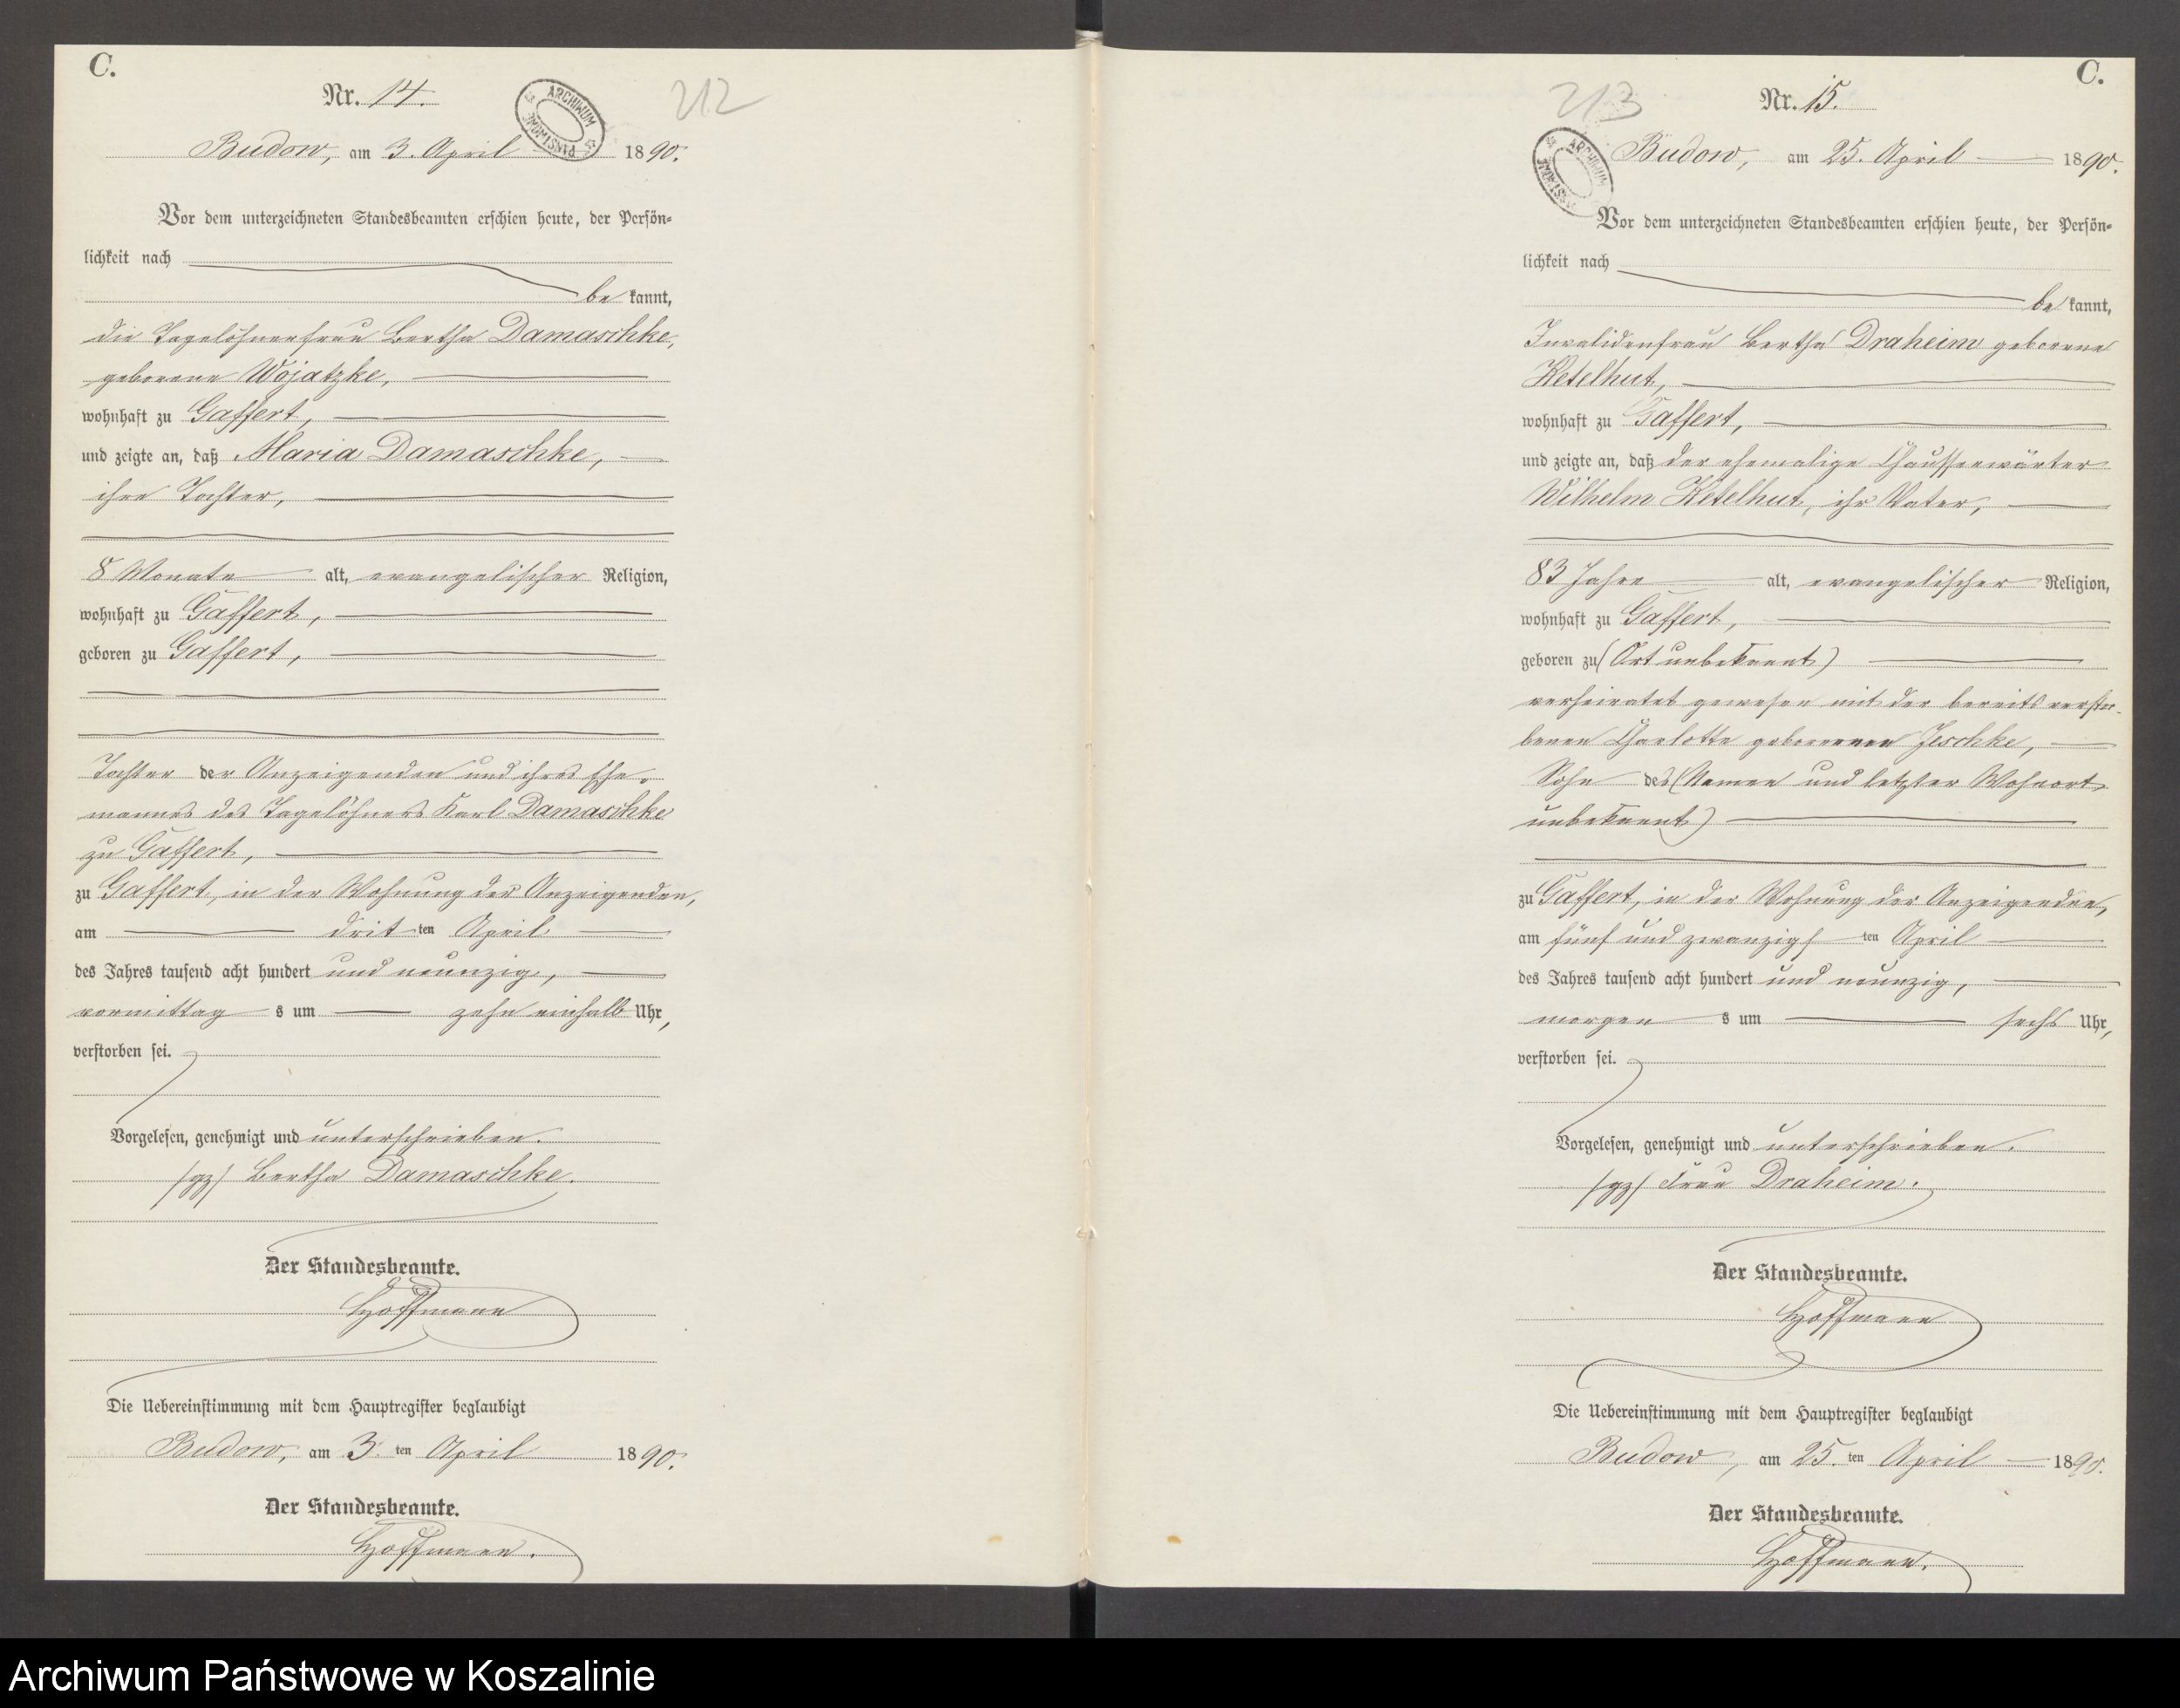 C.
Nr. 14.
ARCHIWUM PAŃSTWOWE
212
Budow, am 3. April 1890.
Vor dem unterzeichneten Standesbeamten erschien heute, der Persön=
lichkeit nach
be kannt,
die Tagelöhnerfrau Bertha Damaschke,
geborene Wojatzke,
wohnhaft zu Gaffert,
und zeigte an, daß Maria Damaschke,
ihre Tochter,
8 Monate alt, evangelischer Religion,
wohnhaft zu Gaffert,
geboren zu Gaffert,
Tochter der Anzeigenden und ihres Ehe-
mannes des Tagelöhners Karl Damaschke
zu Gaffert,
zu Gaffert, in der Wohnung der Anzeigenden,
am drit ten April
des Jahres tausend acht hundert und neunzig,
vormittag s um zehn einhalb Uhr,
verstorben sei.
Vorgelesen, genehmigt und unterschrieben.
/gz/ Bertha Damaschke.
Der Standesbeamte.
Hoffmann
Die Uebereinstimmung mit dem Hauptregister beglaubigt
Budow, am 3. ten April 1890.
Der Standesbeamte.
Hoffmann.
C.
213
Nr. 15.
ARCHIWUM PAŃSTWOWE
Budow, am 25. April 1890.
Vor dem unterzeichneten Standesbeamten erschien heute, der Persön=
lichkeit nach
be kannt,
Invalidenfrau Bertha Draheim geborene
Ketelhut,
wohnhaft zu Gaffert,
und zeigte an, daß der ehemalige Chausseewärter
Wilhelm Ketelhut, ihr Vater,
83 Jahre alt, evangelischer Religion,
wohnhaft zu Gaffert,
geboren zu (Ort unbekannt)
verheiratet gewesen mit der bereits verstor-
benen Charlotte geborenen Jeschke,
Sohn des (Namen und letzter Wohnort
unbekannt)
zu Gaffert, in der Wohnung der Anzeigenden,
am fünf und zwanzigs ten April
des Jahres tausend acht hundert und neunzig,
morgen s um sechs Uhr,
verstorben sei.
Vorgelesen, genehmigt und unterschrieben.
/gz/ Frau Draheim.
Der Standesbeamte.
Hoffmann
Die Uebereinstimmung mit dem Hauptregister beglaubigt
Budow, am 25. ten April 1890.
Der Standesbeamte.
Hoffmann.
Archiwum Państwowe w Koszalinie